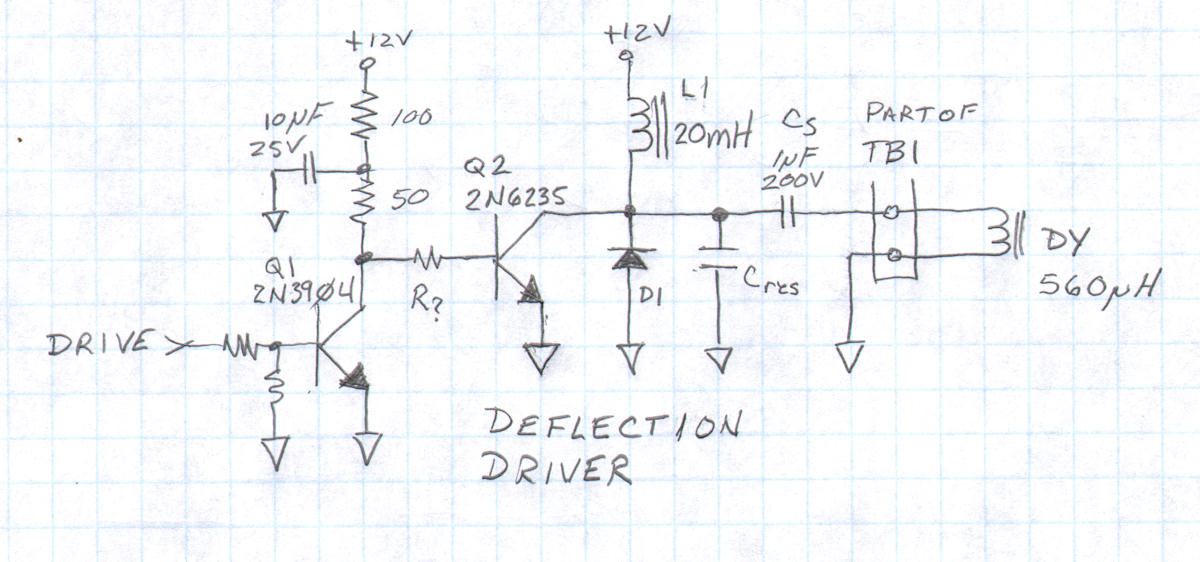 +12V
+12V
10µF
25V
100
L1
20mH
Cs
1µF
200V
PART OF
TB1
Q2
2N6235
50
Q1
2N39Ø4
R?
D1
Cres
DY
560µH
DRIVE
DEFLECTION
DRIVER